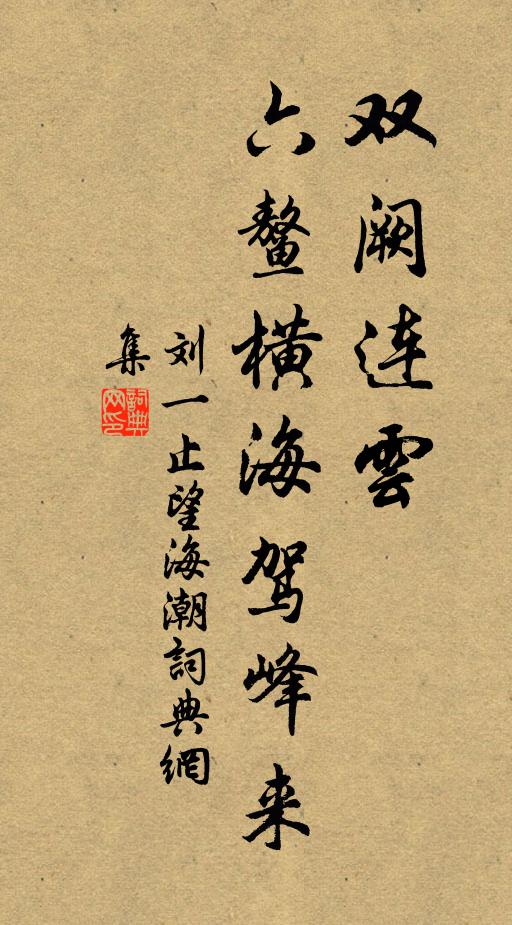 双阙连雲
六鳌横海驾峰来
刘一止望海潮詞典網
集
詞典网印